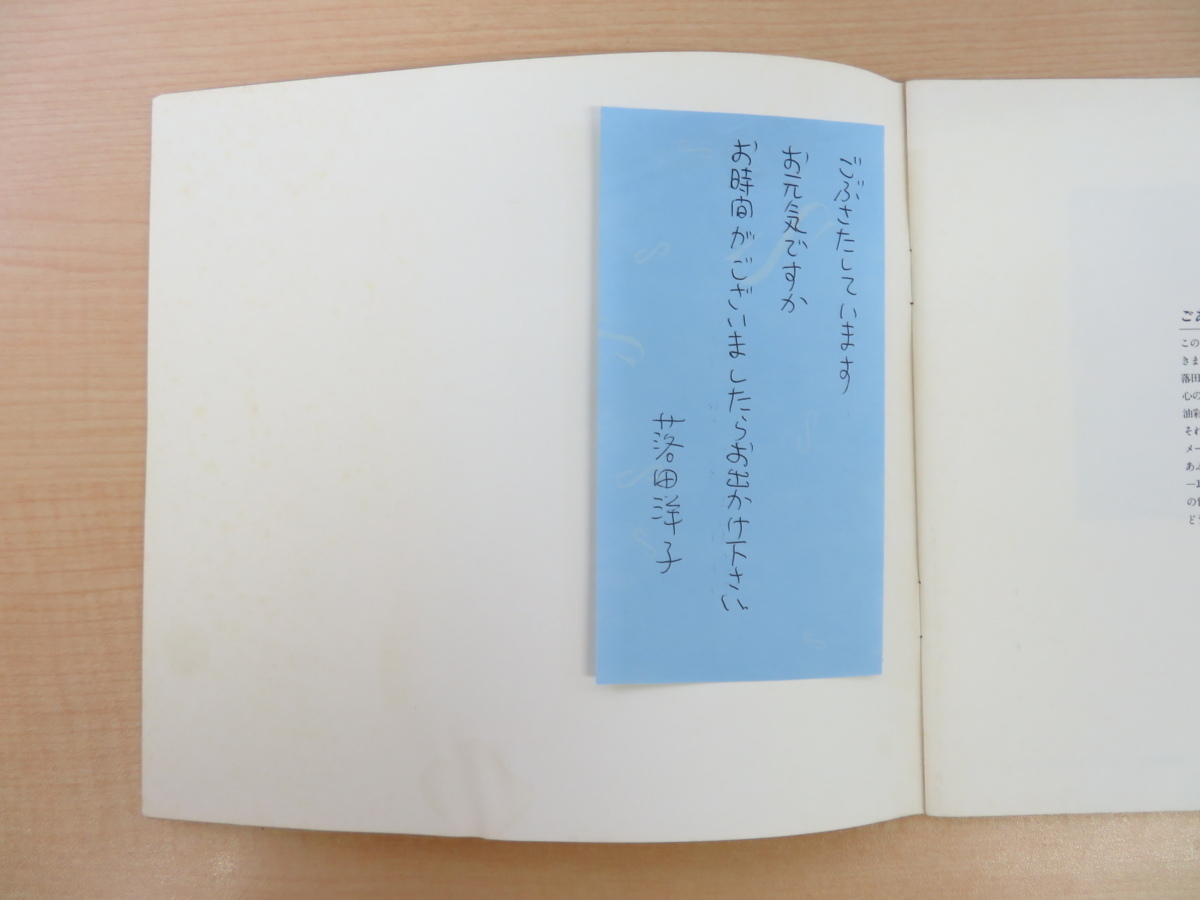 ごぶさたしています
お元気ですか
お時間がございましたらお出かけ下さい
落田洋子
ごあ
この
きま
落田
心の
油彩
それ
メー
あふ
の
どう